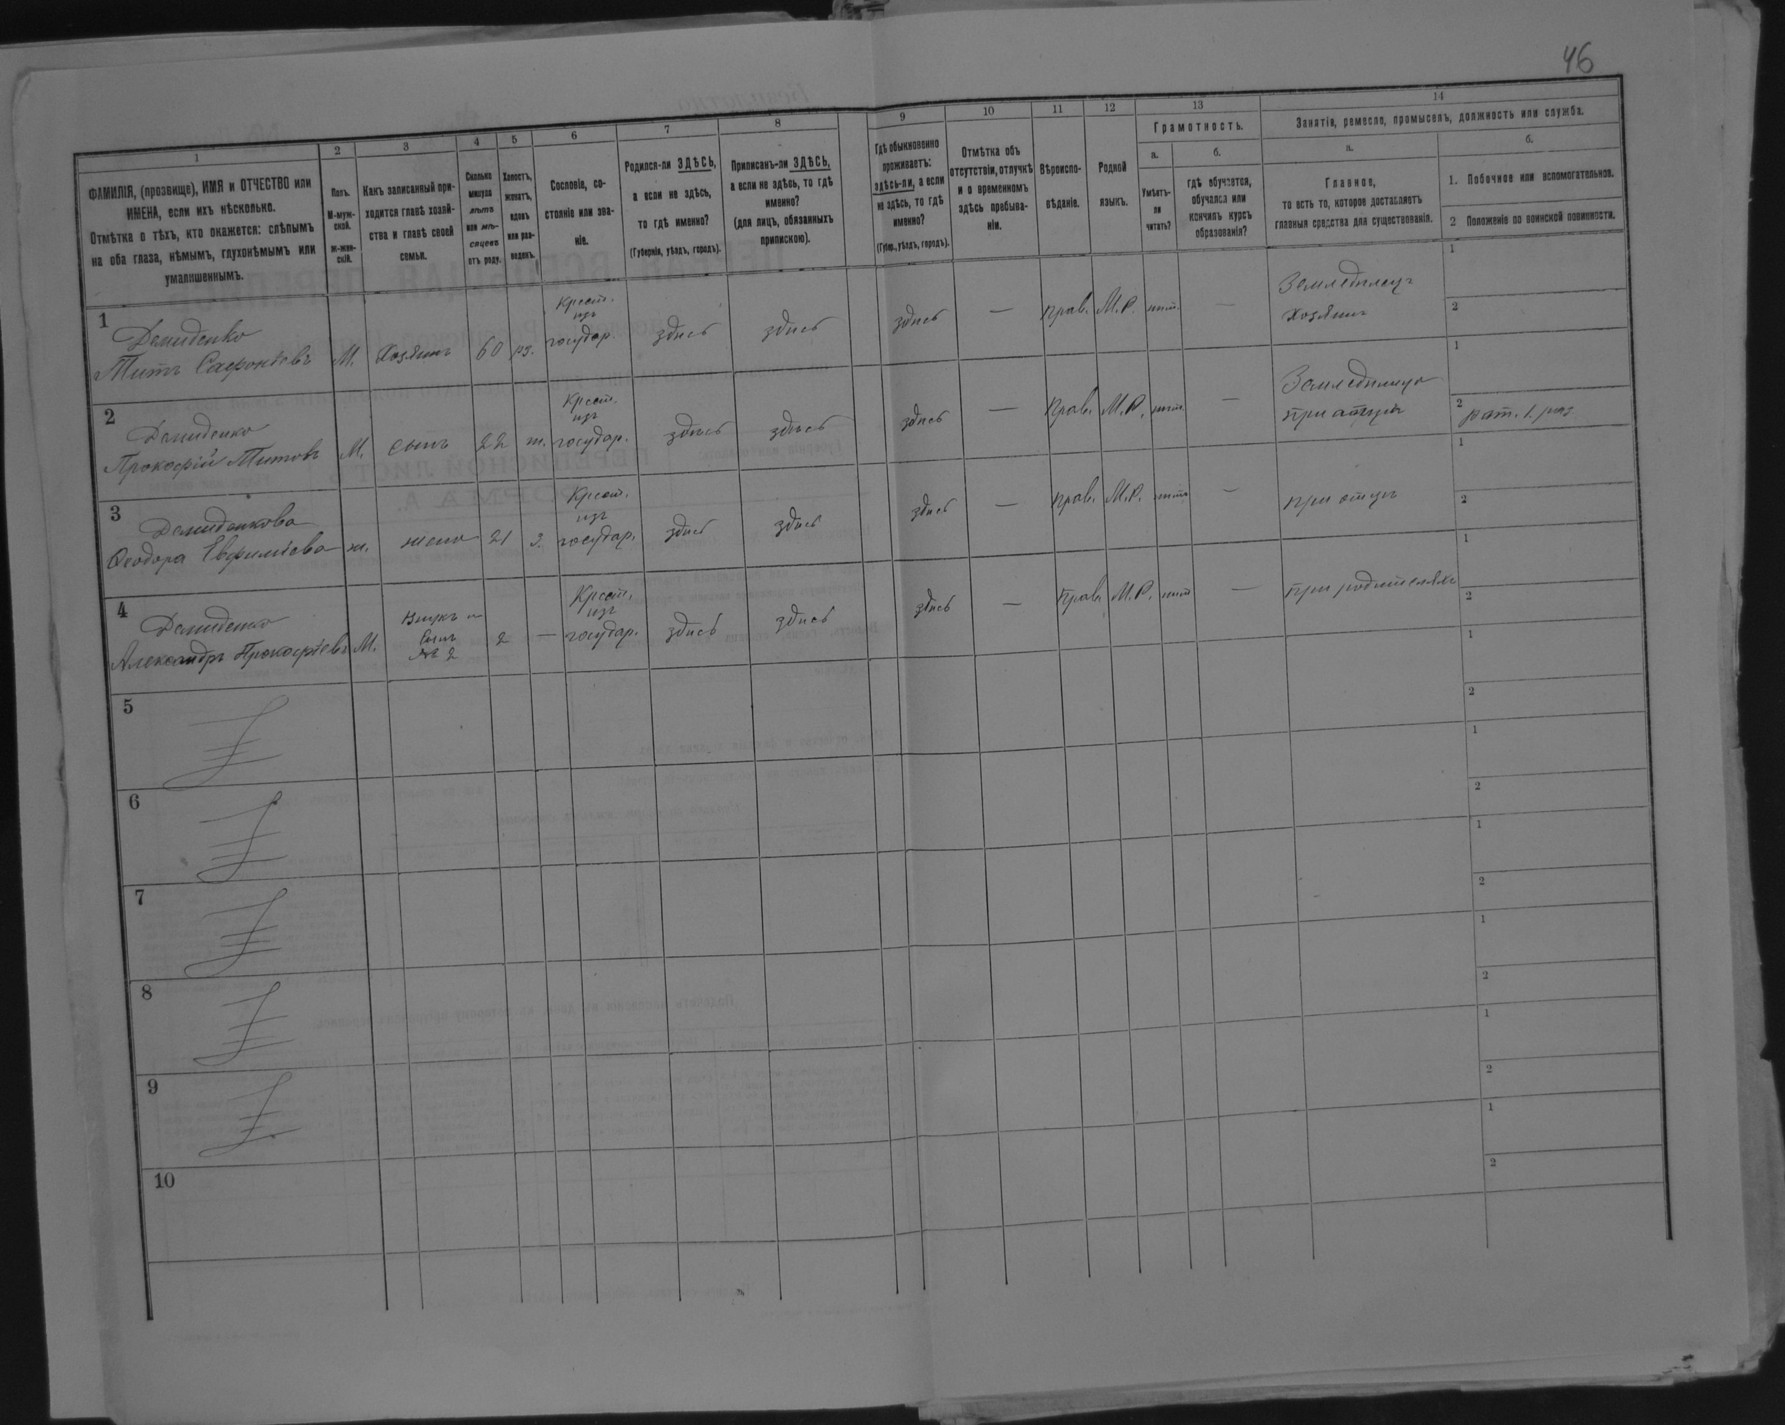 46
1
2
3
4
5
6
7
8
9
10
11
12
13
14
ФАМИЛІЯ, (прозвище), ИМЯ и ОТЧЕСТВО или
ИМЕНА, если ихъ нѣсколько.
Отмѣтка о тѣхъ, кто окажется: слѣпымъ
на оба глаза, нѣмымъ, глухонѣмымъ или
умалишеннымъ.
Полъ.
М-муж-
ской.
Ж-жен-
скій.
Какъ записанный при-
ходится главѣ хозяй-
ства и главѣ своей
семьи.
Сколько
минуло
лѣтъ
или мѣ-
сяцевъ
отъ роду.
Холостъ,
женатъ,
вдовъ
или раз-
веденъ.
Сословіе, со-
стояніе или зва-
ніе.
Родился-ли ЗДѢСЬ,
а если не здѣсь,
то гдѣ именно?
(Губернія, уѣздъ, городъ).
Приписанъ-ли ЗДѢСЬ,
а если не здѣсь, то гдѣ
именно?
(для лицъ, обязанныхъ
припискою).
Гдѣ обыкновенно
проживаетъ:
здѣсь-ли, а если
не здѣсь, то гдѣ
именно?
(Губер., уѣздъ, городъ).
Отмѣтка объ
отсутствіи, отлучкѣ
и о временномъ
здѣсь пребыва-
ніи.
Вѣроиспо-
вѣданіе.
Родной
языкъ.
Грамотность.
а.
б.
Умѣетъ-
ли
читать?
гдѣ обучается,
обучался или
кончилъ курсъ
образованія?
Занятіе, ремесло, промыселъ, должность или служба.
а.
б.
Главное,
то есть то, которое доставляетъ
главныя средства для существованія.
1. Побочное или вспомогательное.
2 Положеніе по воинской повинности.
1
Демиденко
Титъ Сафоновъ М. Хозяинъ 60 Крест. изъ государ. здѣсь здѣсь здѣсь — Прав. М.Р. —
Земледѣлецъ
Хозяинъ
1
2
2
Демиденко
Прокофій Титовъ М. сынъ 22 Крест. изъ государ. здѣсь здѣсь здѣсь — Прав. М.Р. —
при отцѣ
1
2 рат. 1 раз.
3
Демиденкова
Ѳеодора Евфиміева ж. жена 21 з. Крест. изъ государ. здѣсь здѣсь здѣсь — Прав. М.Р. —
при отцѣ
1
2
4
Демиденко
Александръ Прокофіевъ М. Внукъ и Сынъ № 2 2 — Крест. изъ государ. здѣсь здѣсь здѣсь — Прав. М.Р. —
при родителяхъ
1
2
5
1
2
6
1
2
7
1
2
8
1
2
9
1
2
10
1
2